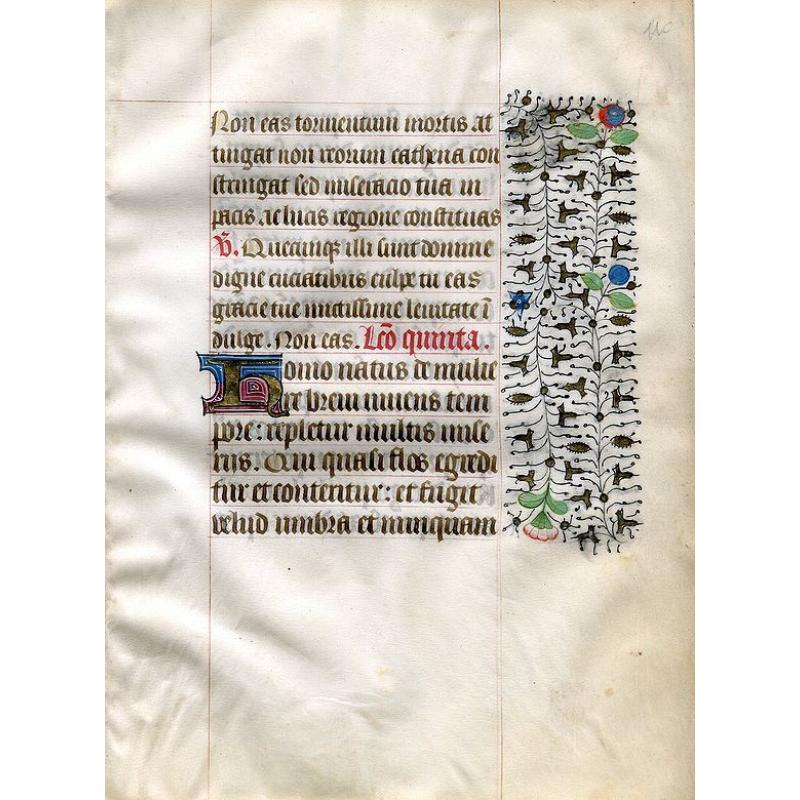 110
Non eas tormentum mortis at
tingat non reorum cathena con
stringat sed miseracio tua in
pacis ac lucis regione constituas
V̄. Quecūqꝫ illi sunt domine
digne cruciatibus culpe tu eas
gracie tue mitissime lenitate ī
dulge. Non eas. Lcō quinta.
Homo natus de mulie
re breui uiuens tem
pore: repletur multis mise
riis. Qui quasi flos egredi
tur et conteritur: et fugit
velud umbra et nunquam